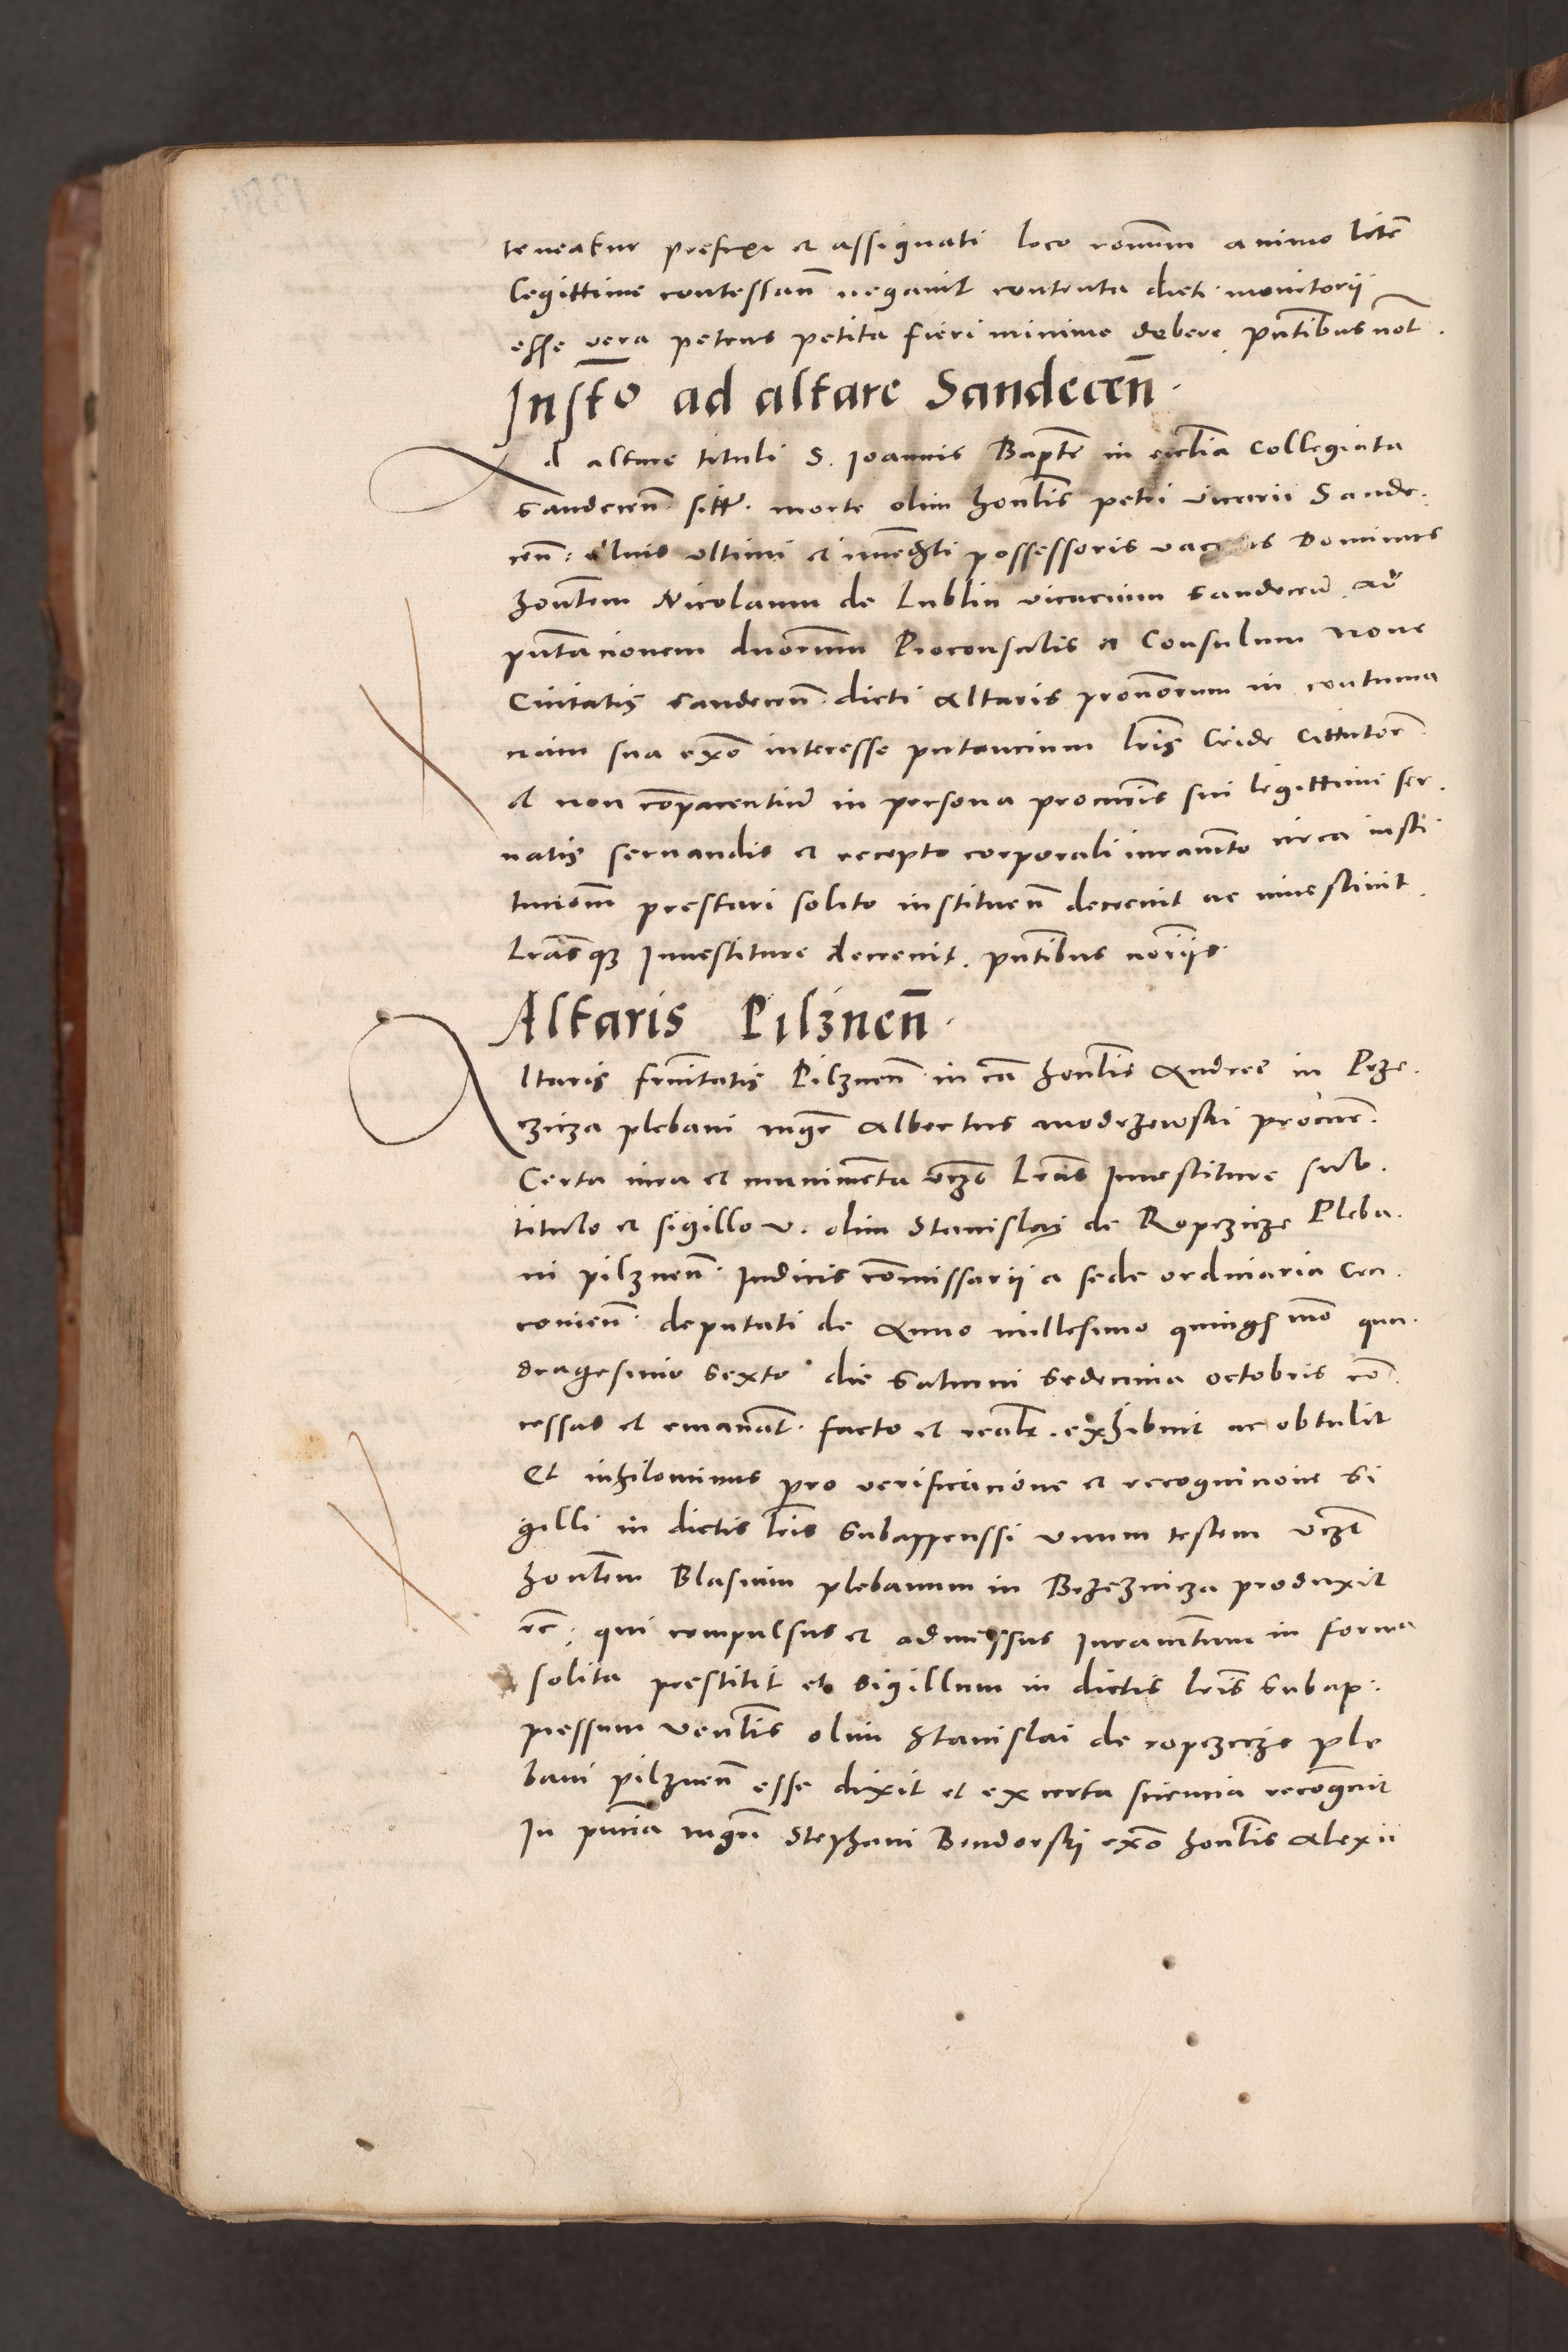 teneatur prefixi et assignati loco ronum animo litē
legittime contestan̄ negauit contenta dicti monitorij
esse vera petens petita fieri minime debere pn̄tibus not.
Insto ad altare Sandecen̄.
Ad altare tituli S. Joannis Bapte in ecclia Collegiata
Sandecen̄ sitū. morte olim honlis petri vicarii Sande.
cen̄: illius ultimi et immedti possessoris vacans Dominus
honlem Nicolaum de Lublin vicarium Sandecen̄ ad
pn̄tacionem dnorum Proconsulis et Consulum Noue
Ciuitatis Sandecen̄ dicti altaris pronorum in contuma
ciam sua exo interesse putancium lris Cride Cittatorē
et non comparentiū in persona procuris sui legittimi ser.
uatis seruandis et recepto corporali iuramto circa insti
tucionem prestari solito instituen̄ decreuit ac inuestiuit.
Lrasque Inuestiture decreuit. pn̄tibus norijs.
Altaris Pilznen̄.
Altaris frnitatis Pilznen̄ in ca honlis Andree in Prze.
czicza plebani mgr Albertus modrzewski procur.
Certa iura et munimenta vcz lras Inuestiture sub.
titulo et sigillo v. olim Stanislai de Ropczicze Pleba.
ni pilznen̄ Judicis commissarij a sede ordinaria Cra.
couien̄ deputati de Anno millesimo quingsmo qua.
dragesimo sexto die Saturni sedecima octobris con.
cessas et emanat. facto et realr. exhibuit ac obtulit
Et nihilominus pro verificacione et recognicione si
gilli in dictis lris subappenssi vnum testem vcz
honlem Blasium plebanum in Brzeznicza produxit
rc. qui compulsus et admissus Juramtum in forma
solita prestitit et sigillum in dictis lris subap:
pressum venlis olim Stanislai de ropczicze ple
bani pilznen̄ esse dixit et ex certa sciencia recognuit
In pn̄cia mgri Stephani Bendorski exo honlis Alexii